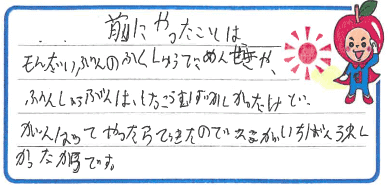 前にやったことは
もんだいぶんのふくしゅうでめんせきや、
ぶんしょうぶんは、けっこうむずかしかったけど、
がんばってやったらできたのでそこがいちばんうれし
かったからです。